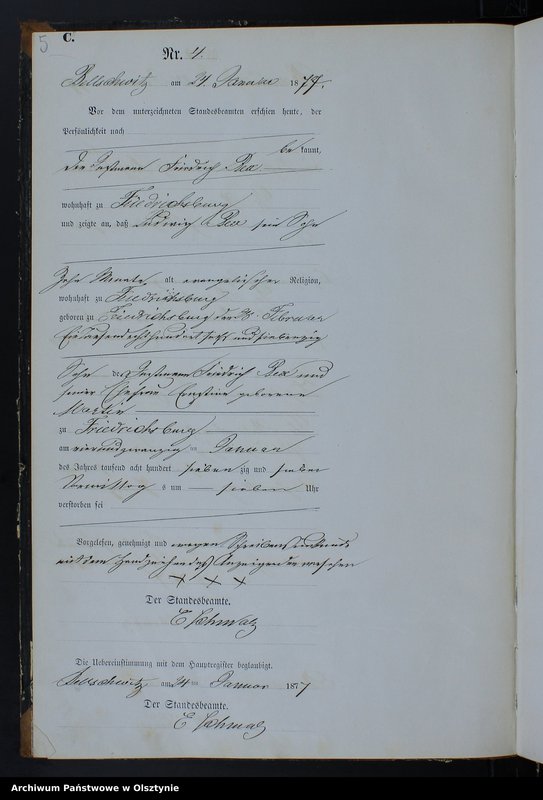 5
C.
Nr. 4.
Bellschwitz am 24. Januar 1877.
Vor dem unterzeichneten Standesbeamten erschien heute, der
Persönlichkeit nach
be kannt,
der Instmann Friedrich Bex
wohnhaft zu Friedrichsburg
und zeigte an, daß Ludwig Bex sein Sohn
Zehn Monate alt evangelischer Religion,
wohnhaft zu Friedrichsburg
geboren zu Friedrichsburg den Februar
Eintausend achthundert sechs und siebenzig
Sohn des Instmann Friedrich Bex und
seiner Ehefrau Ernstine geborene
Martin
zu Friedrichsburg
am vierundzwanzig ten Januar
des Jahres tausend acht hundert sieben zig und sieben
Vormittag s um sieben Uhr
verstorben sei
Vorgelesen, genehmigt und wegen Schreibens
mit dem Handzeichen des Anzeigenden versehen
+ + +
Der Standesbeamte.
E Schmalz
Die Uebereinstimmung mit dem Hauptregister beglaubigt.
Bellschwitz am 24 ten Januar 1877
Der Standesbeamte.
E Schmalz
Archiwum Państwowe w Olsztynie